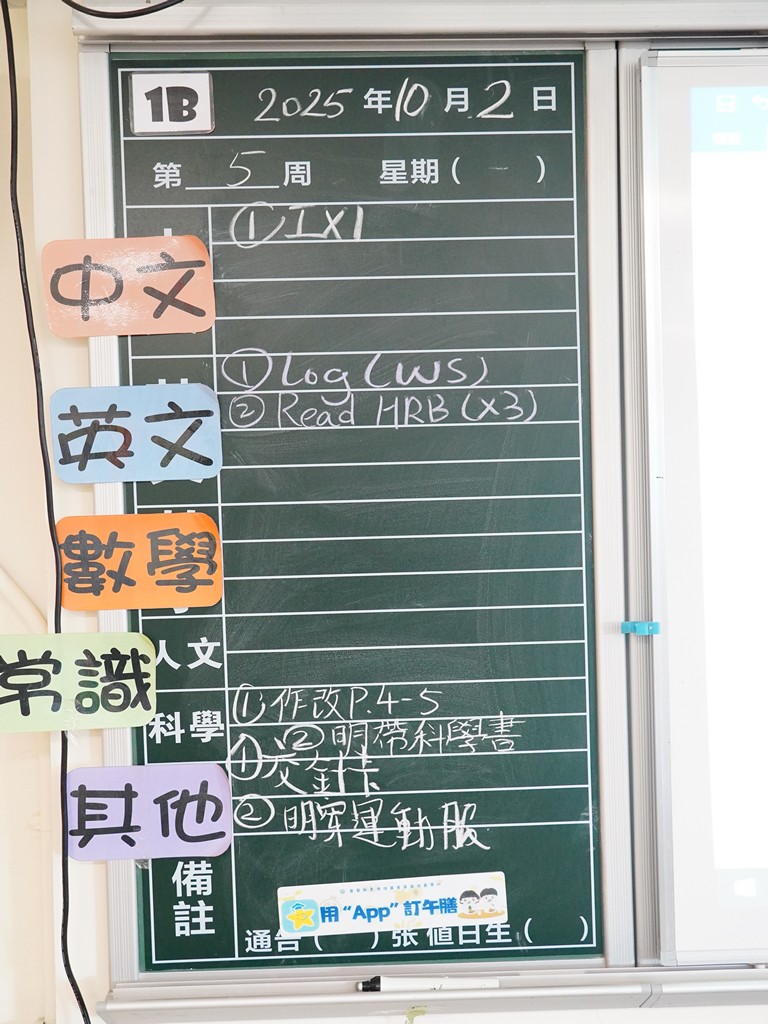 1B 2025年10月2日
第5周 星期(一)
中文
①工X1
英文
①Log(WS)
②Read HRB(x3)
數學
人文
常識
科學
①作改P.4-5
②明帶科學書
其他
①交金卡
②明穿運動服
備註
用“App”訂午膳
通告( )張 值日生( )